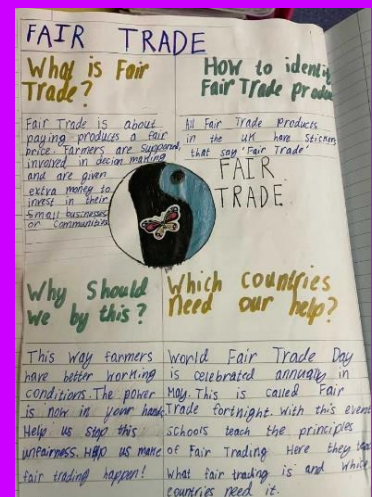 FAIR TRADE
What is Fair
Trade?
Fair Trade is about
paying products a fair
price. Farmers are supported,
involved in decion making
and are given
extra money to
invest in their
small businesses
or communities
How to identi
Fair Trade produ
All Fair Trade products
in the UK have stickers
that say 'Fair Trade'
FAIR
TRADE
Why Should
we by this?
This way farmers
have better working
conditions. The power
is now in your hand
Help us stop this
unfairness. Help us make
fair trading happen!
Which countries
need our help?
World Fair Trade Day
is celebrated annually in
May. This is called Fair
Trade fortnight. With this event
schools teach the principles
of Fair Trading Here they
what fair trading is and which
countries need it.